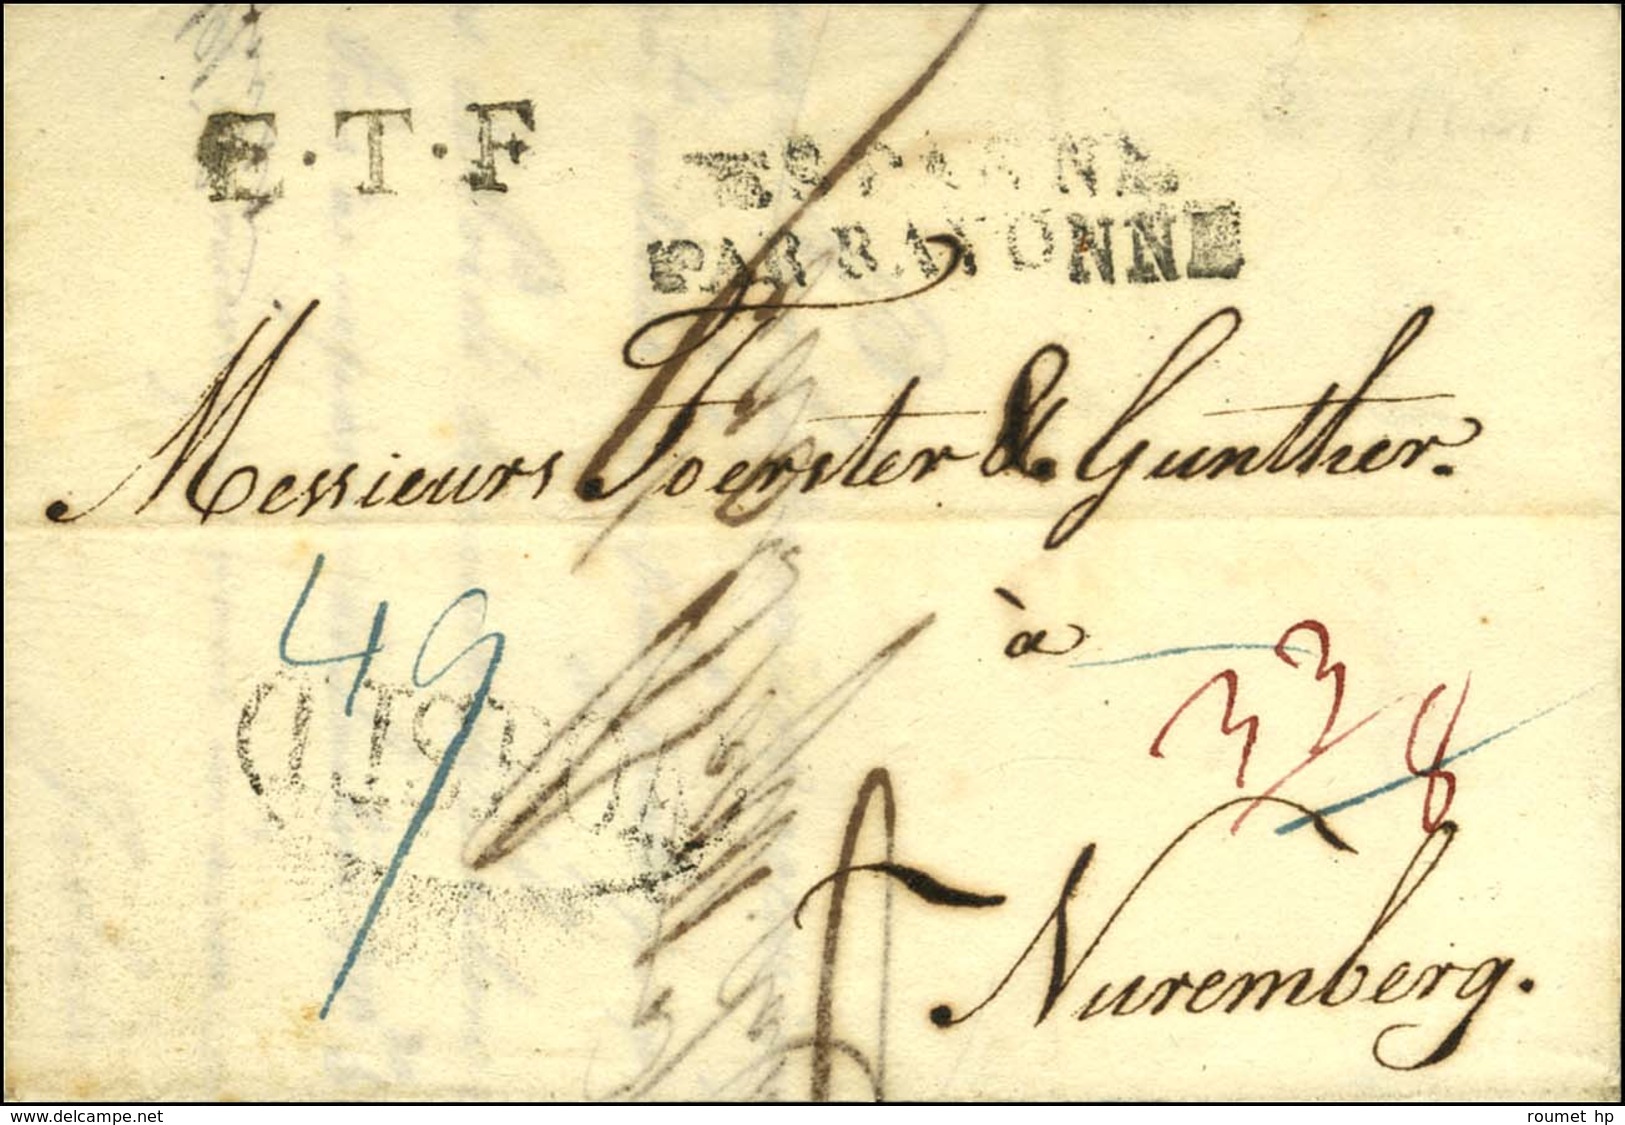 E·T·F
ESPAGNE
PAR BAYONNE
Messieurs Foerster & Gunther.
49
à
33
8
LISBOA
Nuremberg.
www.delcampe.net
roumet hp